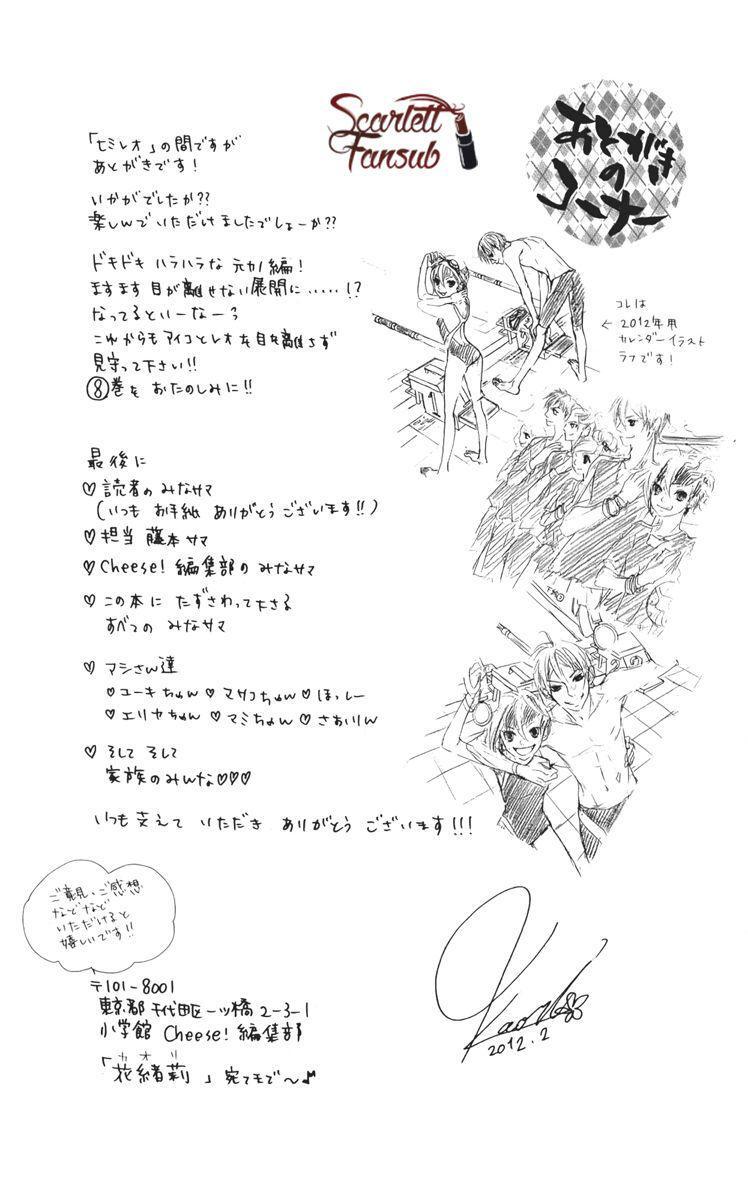 Scarlett
Fansub
あとがき
の
コーナー
「ヒミレオ」の間ですが
あとがきです!
いかがでしたか??
楽しんでいただけましたでしょーか??
ドキドキ ハラハラな 元カノ編!
ますます 目が離せない 展開に……!?
なってるといーなー
これからもアイコとレオを目を離さず
見守って下さい!!
⑧巻を おたのしみに!!
コレは
← 2012年用
カレンダーイラスト
ラフです!
最後に
♡ 読者の みなサマ
(いつも お手紙 ありがとう ございます!!)
♡ 担当 藤本サマ
♡ Cheese! 編集部の みなサマ
♡ この本に たずさわって下さる
すべての みなサマ
♡ アシさん達
♡ユーキちゃん ♡マサコちゃん ♡ほっしー
♡エリヤちゃん ♡マミちゃん ♡さおりん
♡ そして そして
家族のみんな♡♡♡
いつも 支えて いただき ありがとう ございます!!!
ご意見・ご感想
などなど
いただけると
嬉しいです!!
〒101-8001
東京都千代田区一ツ橋2-3-1
小学館 Cheese! 編集部
カオリ
「花緒莉」宛てまで〜♪
Kaori
2012.2